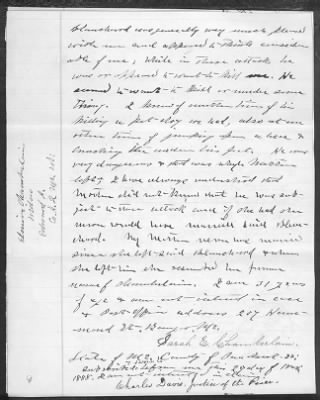 blanchard was generally very much pleased
with me and appeared to think consider
able of me, while in these attacks he
was or appeared to want to kill me. He
seemed to want to kill or murder some
thing. I know of another time of his
killing a pet dog we had, also at one
other time of jumping upon a hen &
crushing the under his feet. He was
very dangerous & that was why Mother
left. I have always understood that
Mother did not know that he was sub-
ject to these attacks and if she had she
never would have married said Blan-
chard. My Mother never was married
since she left said Blanchard & when
she left him she resumed her former
name of Chamberlain. I am 31 years
of age & am not interested in case
& Post office address 207 Ham-
mond St. Bangor, Me.
Sarah E. Chamberlain
State of Me. County of Penobscot SS:
Subscribed before me this day of
1898. I am not interested in claim
Charles Davis, Justice of the Peace.
Chamberlain
Widow